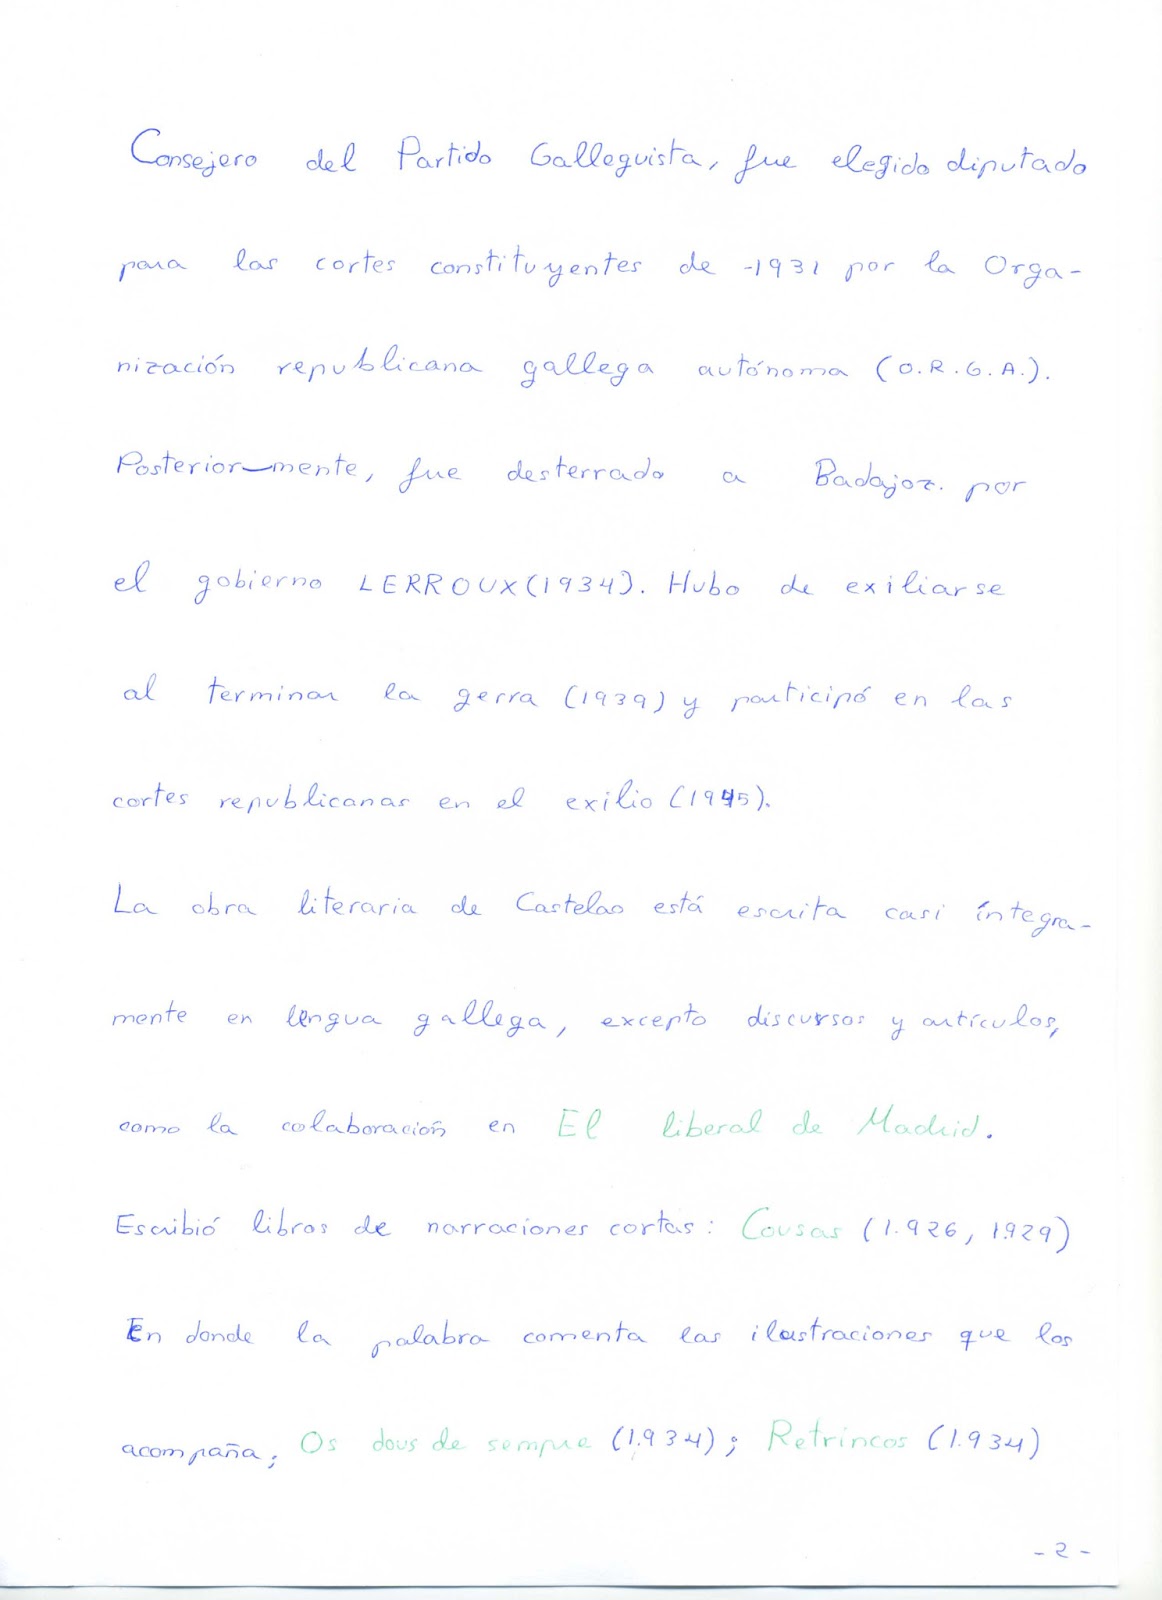 Consejero del Partido Galleguista, fue elegido diputado
para las cortes constituyentes de 1931 por la Orga-
nización republicana gallega autónoma (O.R.G.A.).
Posterior-mente, fue desterrado a Badajoz. por
el gobierno LERROUX (1934). Hubo de exiliarse
al terminar la gerra (1939) y participó en las
cortes republicanas en el exilio (1945).
La obra literaria de Castelao está escrita casi íntegra-
mente en lengua gallega, excepto discursos y artículos,
como la colaboración en El liberal de Madrid.
Escribió libros de narraciones cortas: Cousas (1.926, 1.929)
En donde la palabra comenta las ilustraciones que los
acompaña; Os dous de sempre (1.934); Retrincos (1.934)
-2-